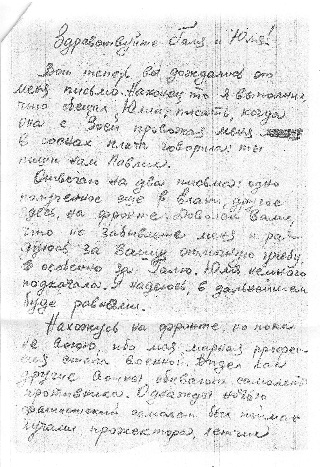 Здравствуйте Галя и Юля!
Вот теперь вы дождались от
меня письма. Наконец то я выполнил,
что обещал Юлии, писать, когда
она с Зоей провожая меня
в соснах плача говорила: ты
пиши нам Павлик.
Отвечаю на два письма: одно
полученное еще в другое
здесь, на фронте. Доволен Вами,
что не забываете меня и ра-
дуюсь за Вашу отличную учебу,
а особенно за Галю. Юля немного
подкачала. Я надеюсь, в дальнейшем
буде равными.
Нахожусь на фронте, но пока
не воюю, ибо моя мирная профес-
сия стала военной. Видел как
другие воины сбивали самолет
противника. Однажды ночью
фашистский самолет был пойман
лучами прожектора, летчик